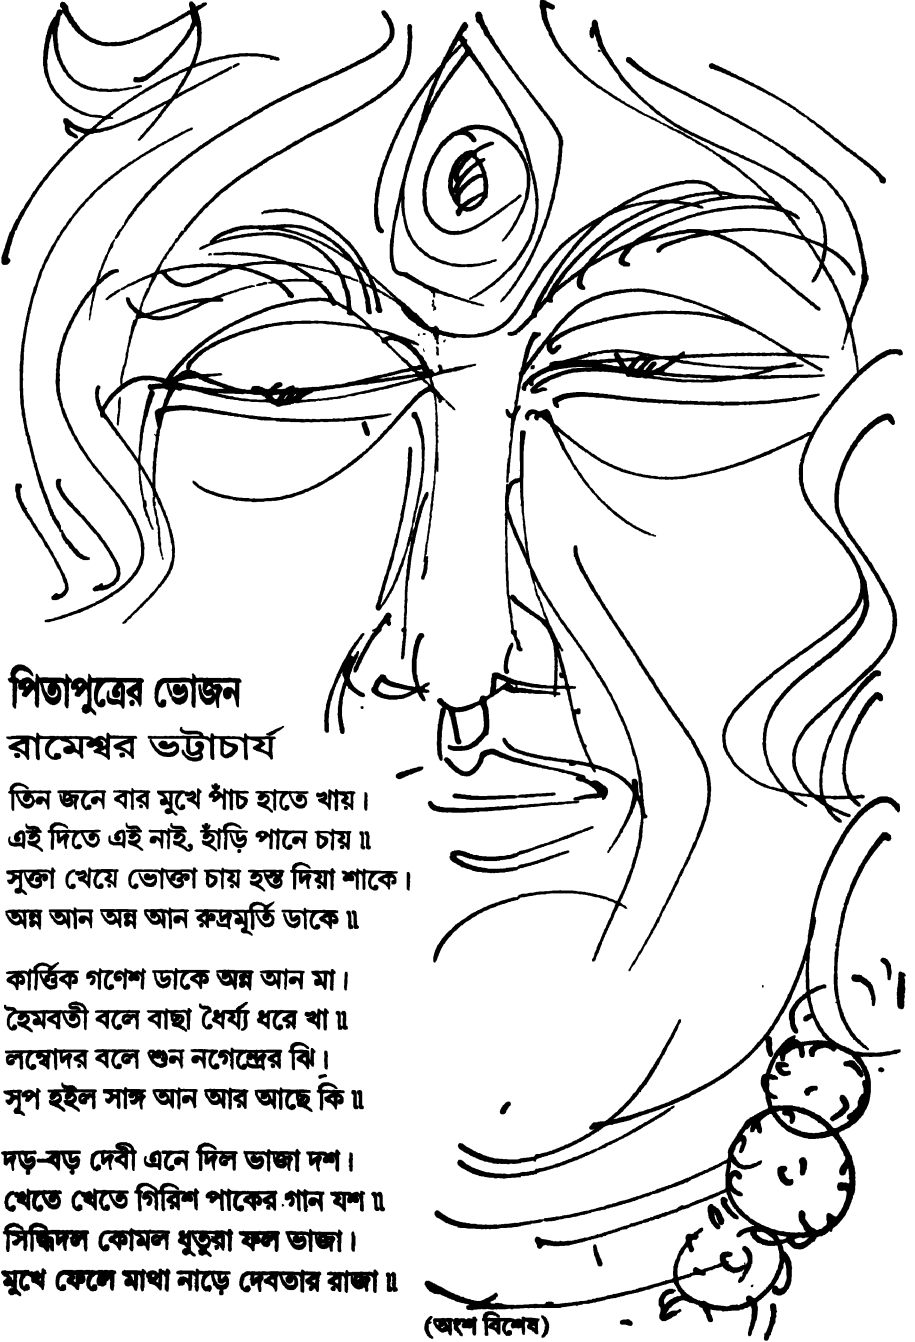 পিতাপুত্রের ভোজন
রামেশ্বর ভট্টাচার্য
তিন জনে বার মুখে পাঁচ হাতে খায়।
এই দিতে এই নাই, হাঁড়ি পানে চায়॥
সুক্তা খেয়ে ভোক্তা চায় হস্ত দিয়া শাকে।
অন্ন আন অন্ন আন রুদ্রমূর্তি ডাকে॥
কার্ত্তিক গণেশ ডাকে অন্ন আন মা।
হৈমবতী বলে বাছা ধৈর্য্য ধরে খা॥
লম্বোদর বলে শুন নগেন্দ্রের ঝি।
সূপ হইল সাঙ্গ আন আর আছে কি॥
দড়-বড় দেবী এনে দিল ভাজা দশ।
খেতে খেতে গিরিশ পাকের গান যশ॥
সিদ্ধিদল কোমল ধুতুরা ফল ভাজা।
মুখে ফেলে মাথা নাড়ে দেবতার রাজা॥
(অংশ বিশেষ)